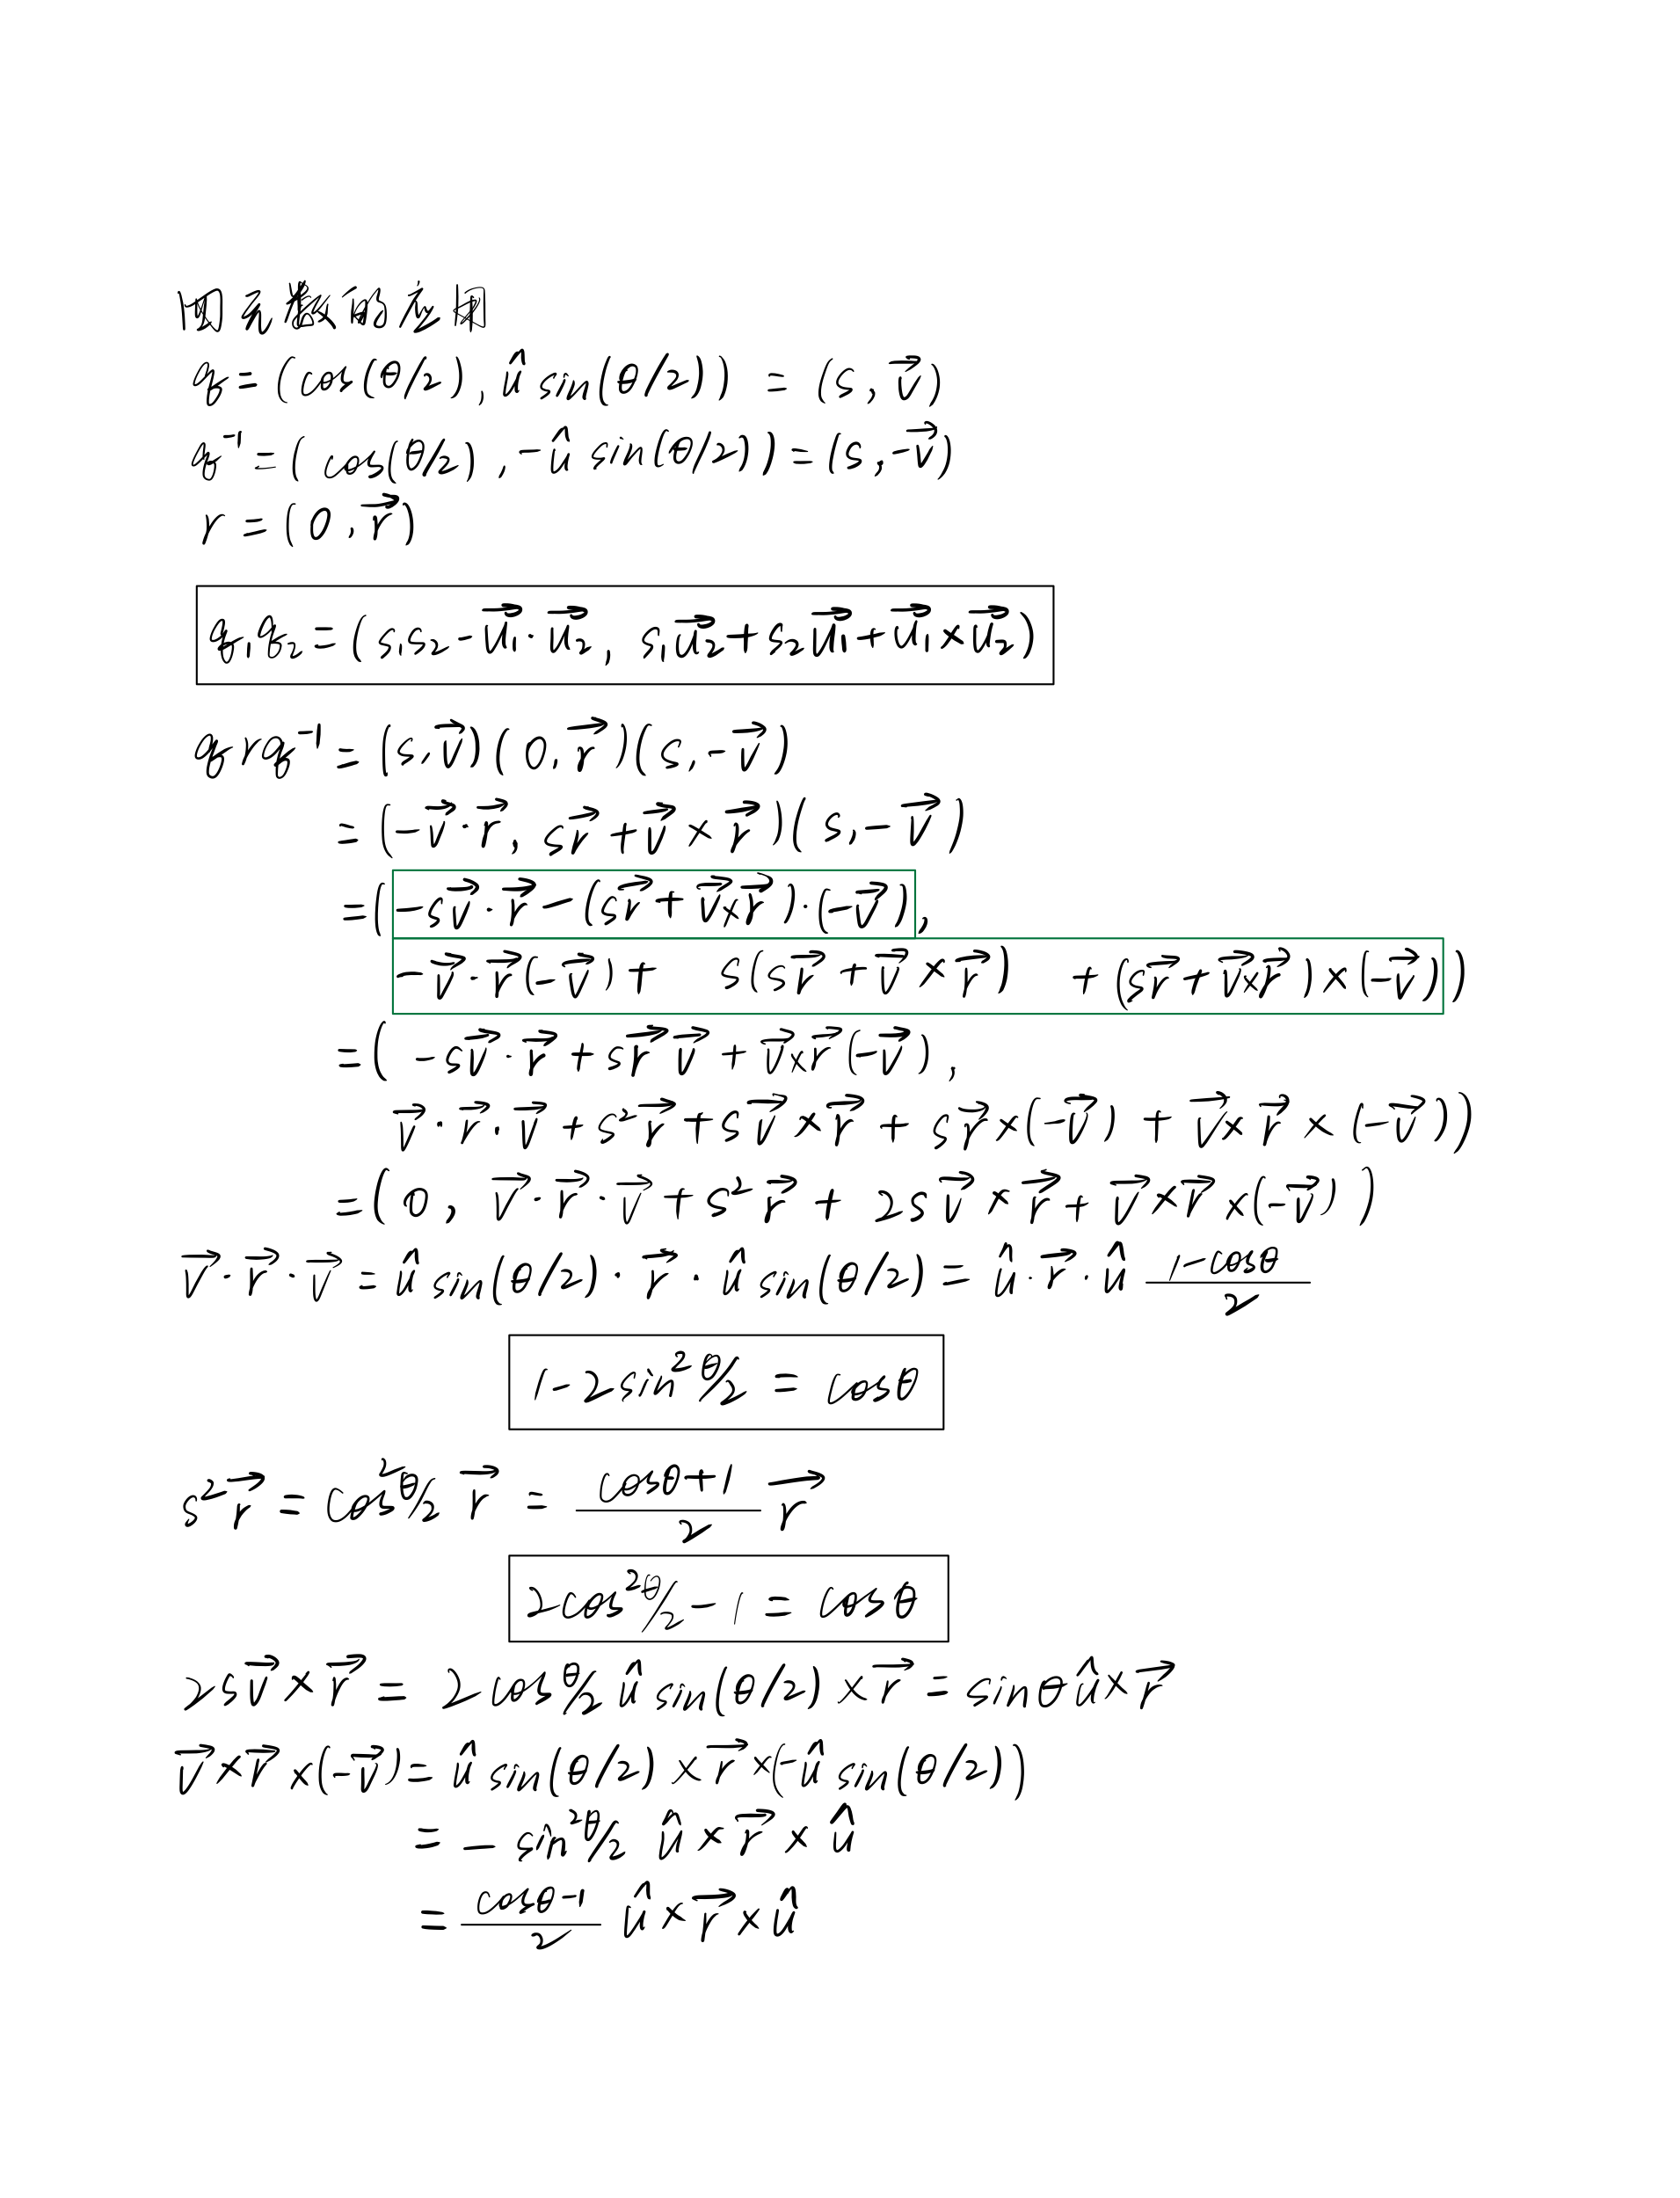 四元数的应用
q = (cos(θ/2), û sin(θ/2)) = (s, v⃗)
q⁻¹ = (cos(θ/2), -û sin(θ/2)) = (s, -v⃗)
r = (0, r⃗)
q₁q₂ = (s₁s₂ - u⃗₁·u⃗₂, s₁u⃗₂ + s₂u⃗₁ + u⃗₁×u⃗₂)
qrq⁻¹ = (s, v⃗)(0, r⃗)(s, -v⃗)
= (-v⃗·r⃗, sr⃗ + v⃗×r⃗)(s, -v⃗)
= (-sv⃗·r⃗ - (sr⃗ + v⃗×r⃗)·(-v⃗),
-v⃗·r⃗(-v⃗) + s(sr⃗ + v⃗×r⃗) + (sr⃗ + v⃗×r⃗)×(-v⃗))
= (-sv⃗·r⃗ + sr⃗v⃗ + v⃗×r⃗(-v⃗),
v⃗·r⃗·v⃗ + s²r⃗ + sv⃗×r⃗ + sr⃗×(-v⃗) + v⃗×r⃗×(-v⃗))
= (0, v⃗·r⃗·v⃗ + s²r⃗ + 2sv⃗×r⃗ + v⃗×r⃗×(-v⃗))
v⃗·r⃗·v⃗ = û sin(θ/2)·r⃗·û sin(θ/2) = û·r⃗·û (1-cosθ)/2
1 - 2sin²θ/2 = cosθ
s²r⃗ = cos²θ/2 r⃗ = (cosθ+1)/2 r⃗
2cos²θ/2 - 1 = cosθ
2sv⃗×r⃗ = 2cosθ/2 û sin(θ/2)×r⃗ = sinθ û×r⃗
v⃗×r⃗×(-v⃗) = û sin(θ/2)×r⃗×(-û sin(θ/2))
= -sin²θ/2 û×r⃗×û
= (cosθ-1)/2 û×r⃗×û